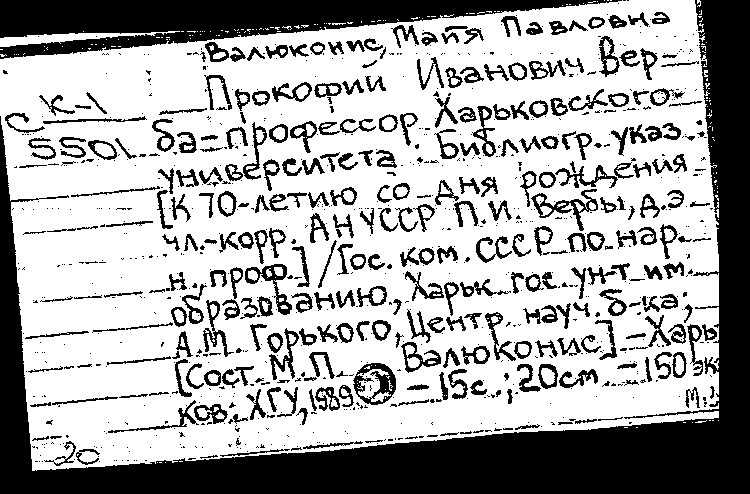 Валюконис, Майя Павловна
Прокофий Иванович Вер-
К-1
С
5501
ба – профессор Харьковского
университета : Библиогр. указ. :
[К 70-летию со дня рождения
чл.-корр. АН УССР П.И. Вербы, д.э.
н., проф.] / Гос. ком. СССР по нар.
образованию, Харьк. гос. ун-т им.
А.М. Горького, Центр. науч. б-ка;
[Сост. М.П. Валюконис] – Харь
ков: ХГУ, 1989 – 15с.; 20см – 150 эк
20